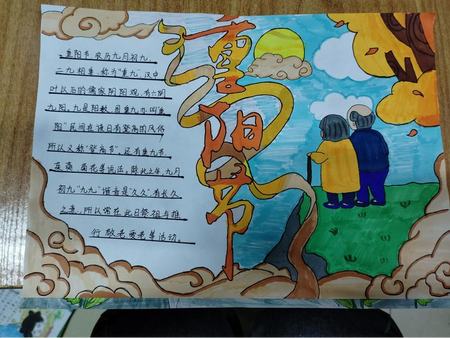 重阳节
重阳节农历九月初九,
二九相重,称为"重九",汉中
叶以后的儒家阴阳观,有六阴
九阳,九是阳数,固重九亦叫"重
阳"民间在该日有登高的风俗
所以又称"登高节",还有重九节、
茱萸、菊花等说法,除此之外,九月
初九"九九"谐音是"久久"有长久
之意,所以常在此日祭祖与推
行敬老爱老等活动。